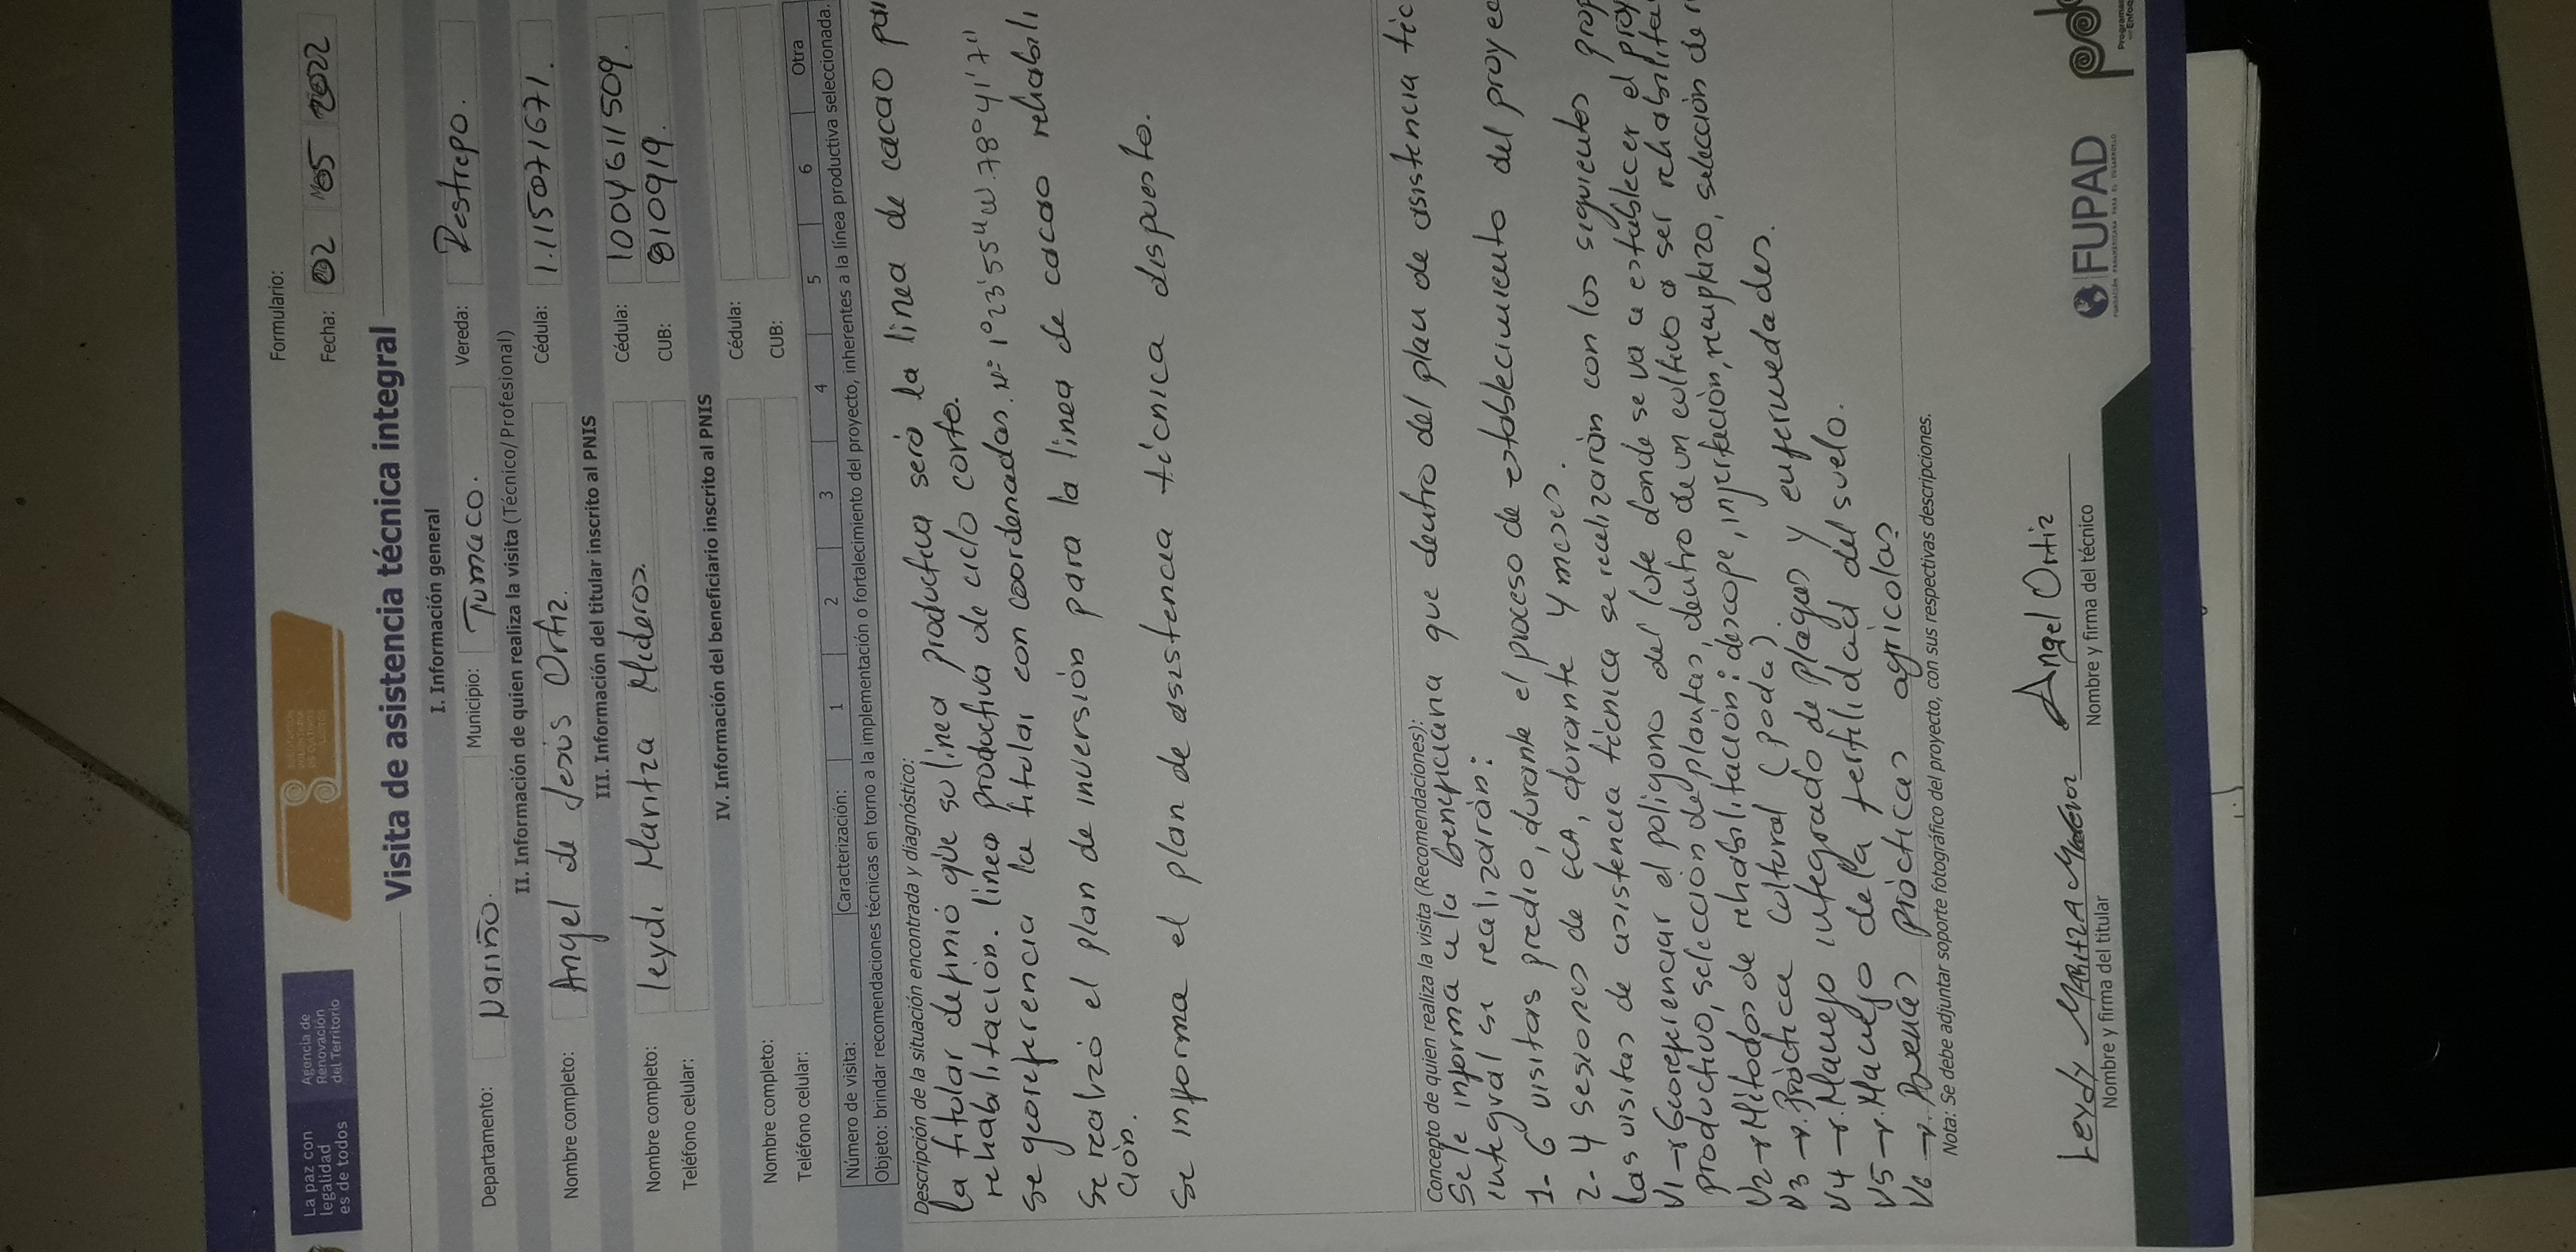 La paz con
legalidad
es de todos
Agencia de
Renovación
del Territorio
SUSTITUCIÓN
VOLUNTARIA
DE CULTIVOS
ILÍCITOS
Formulario:
Fecha: 02 05 2022
Visita de asistencia técnica integral
I. Información general
Departamento: Nariño. Municipio: Tumaco. Vereda: Restrepo.
II. Información de quien realiza la visita (Técnico/Profesional)
Nombre completo: Angel de Jesús Ortiz. Cédula: 1.115071671.
III. Información del titular inscrito al PNIS
Nombre completo: leydi Maritza Mideros. Cédula: 1004611509.
Teléfono celular: CUB: 810919.
IV. Información del beneficiario inscrito al PNIS
Nombre completo: Cédula:
Teléfono celular: CUB:
Número de visita: Caracterización: 1 2 3 4 5 6 Otra
Objeto: brindar recomendaciones técnicas en torno a la implementación o fortalecimiento del proyecto, inherentes a la línea productiva seleccionada.
Descripción de la situación encontrada y diagnóstico:
la titular definió que su linea productiva será la linea de cacao par
rehabilitación. linea productiva de ciclo corto.
se georeferencia la titular con coordenadas. N= 1°23'55" W.78°41'7"
se realizó el plan de inversión para la linea de cacao rehabili
ción.
se informa el plan de asistencia técnica dispuesto.
Concepto de quien realiza la visita (Recomendaciones):
Se le informa a la beneficiaria que dentro del plan de asistencia téc
integral se realizarán:
1- 6 visitas predio, durante el proceso de establecimiento del proyec
2- 4 sesiones de ECA, durante 4 meses.
las visitas de asistencia técnica se realizarán con los siguientes prop
V1 → Georeferenciar el poligono del lote donde se va a establecer el proy
productivo, selección de plantas, dentro de un cultivo a ser rehabilita
V2 → Métodos de rehabilitación: descope, injertación, remplazo, selección de r
V3 → Práctica cultural (poda)
V4 → Manejo integrado de plagas y enfermedades.
V5 → Manejo de la fertilidad del suelo.
V6 → Buenas prácticas agricolas
Nota: Se debe adjuntar soporte fotográfico del proyecto, con sus respectivas descripciones.
Leydy MARITZA Mideros
Nombre y firma del titular
Angel Ortiz
Nombre y firma del técnico
FUPAD
FUNDACIÓN PANAMERICANA PARA EL DESARROLLO